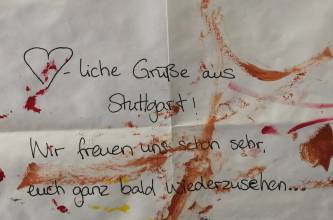 ♡-liche Grüße aus
Stuttgart!
Wir freuen uns schon sehr,
euch ganz bald wiederzusehen...